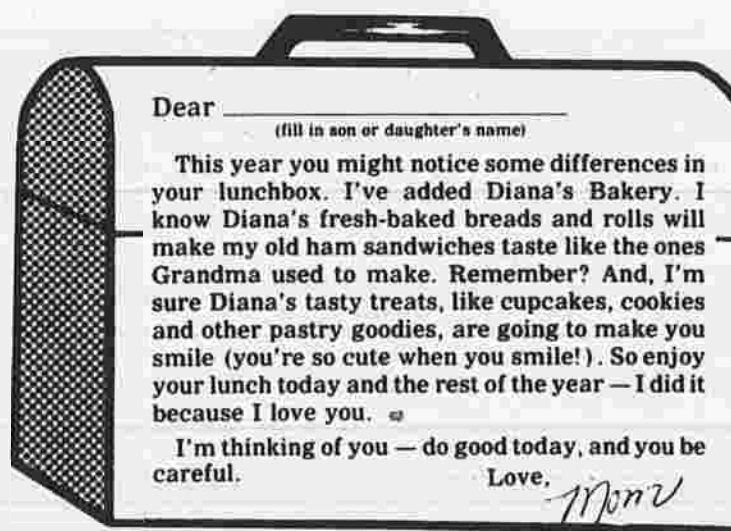 Dear
(fill in son or daughter's name)
This year you might notice some differences in
your lunchbox. I've added Diana's Bakery. I
know Diana's fresh-baked breads and rolls will
make my old ham sandwiches taste like the ones
Grandma used to make. Remember? And, I'm
sure Diana's tasty treats, like cupcakes, cookies
and other pastry goodies, are going to make you
smile (you're so cute when you smile!). So enjoy
your lunch today and the rest of the year — I did it
because I love you.
I'm thinking of you — do good today, and you be
careful. Love,
Mom